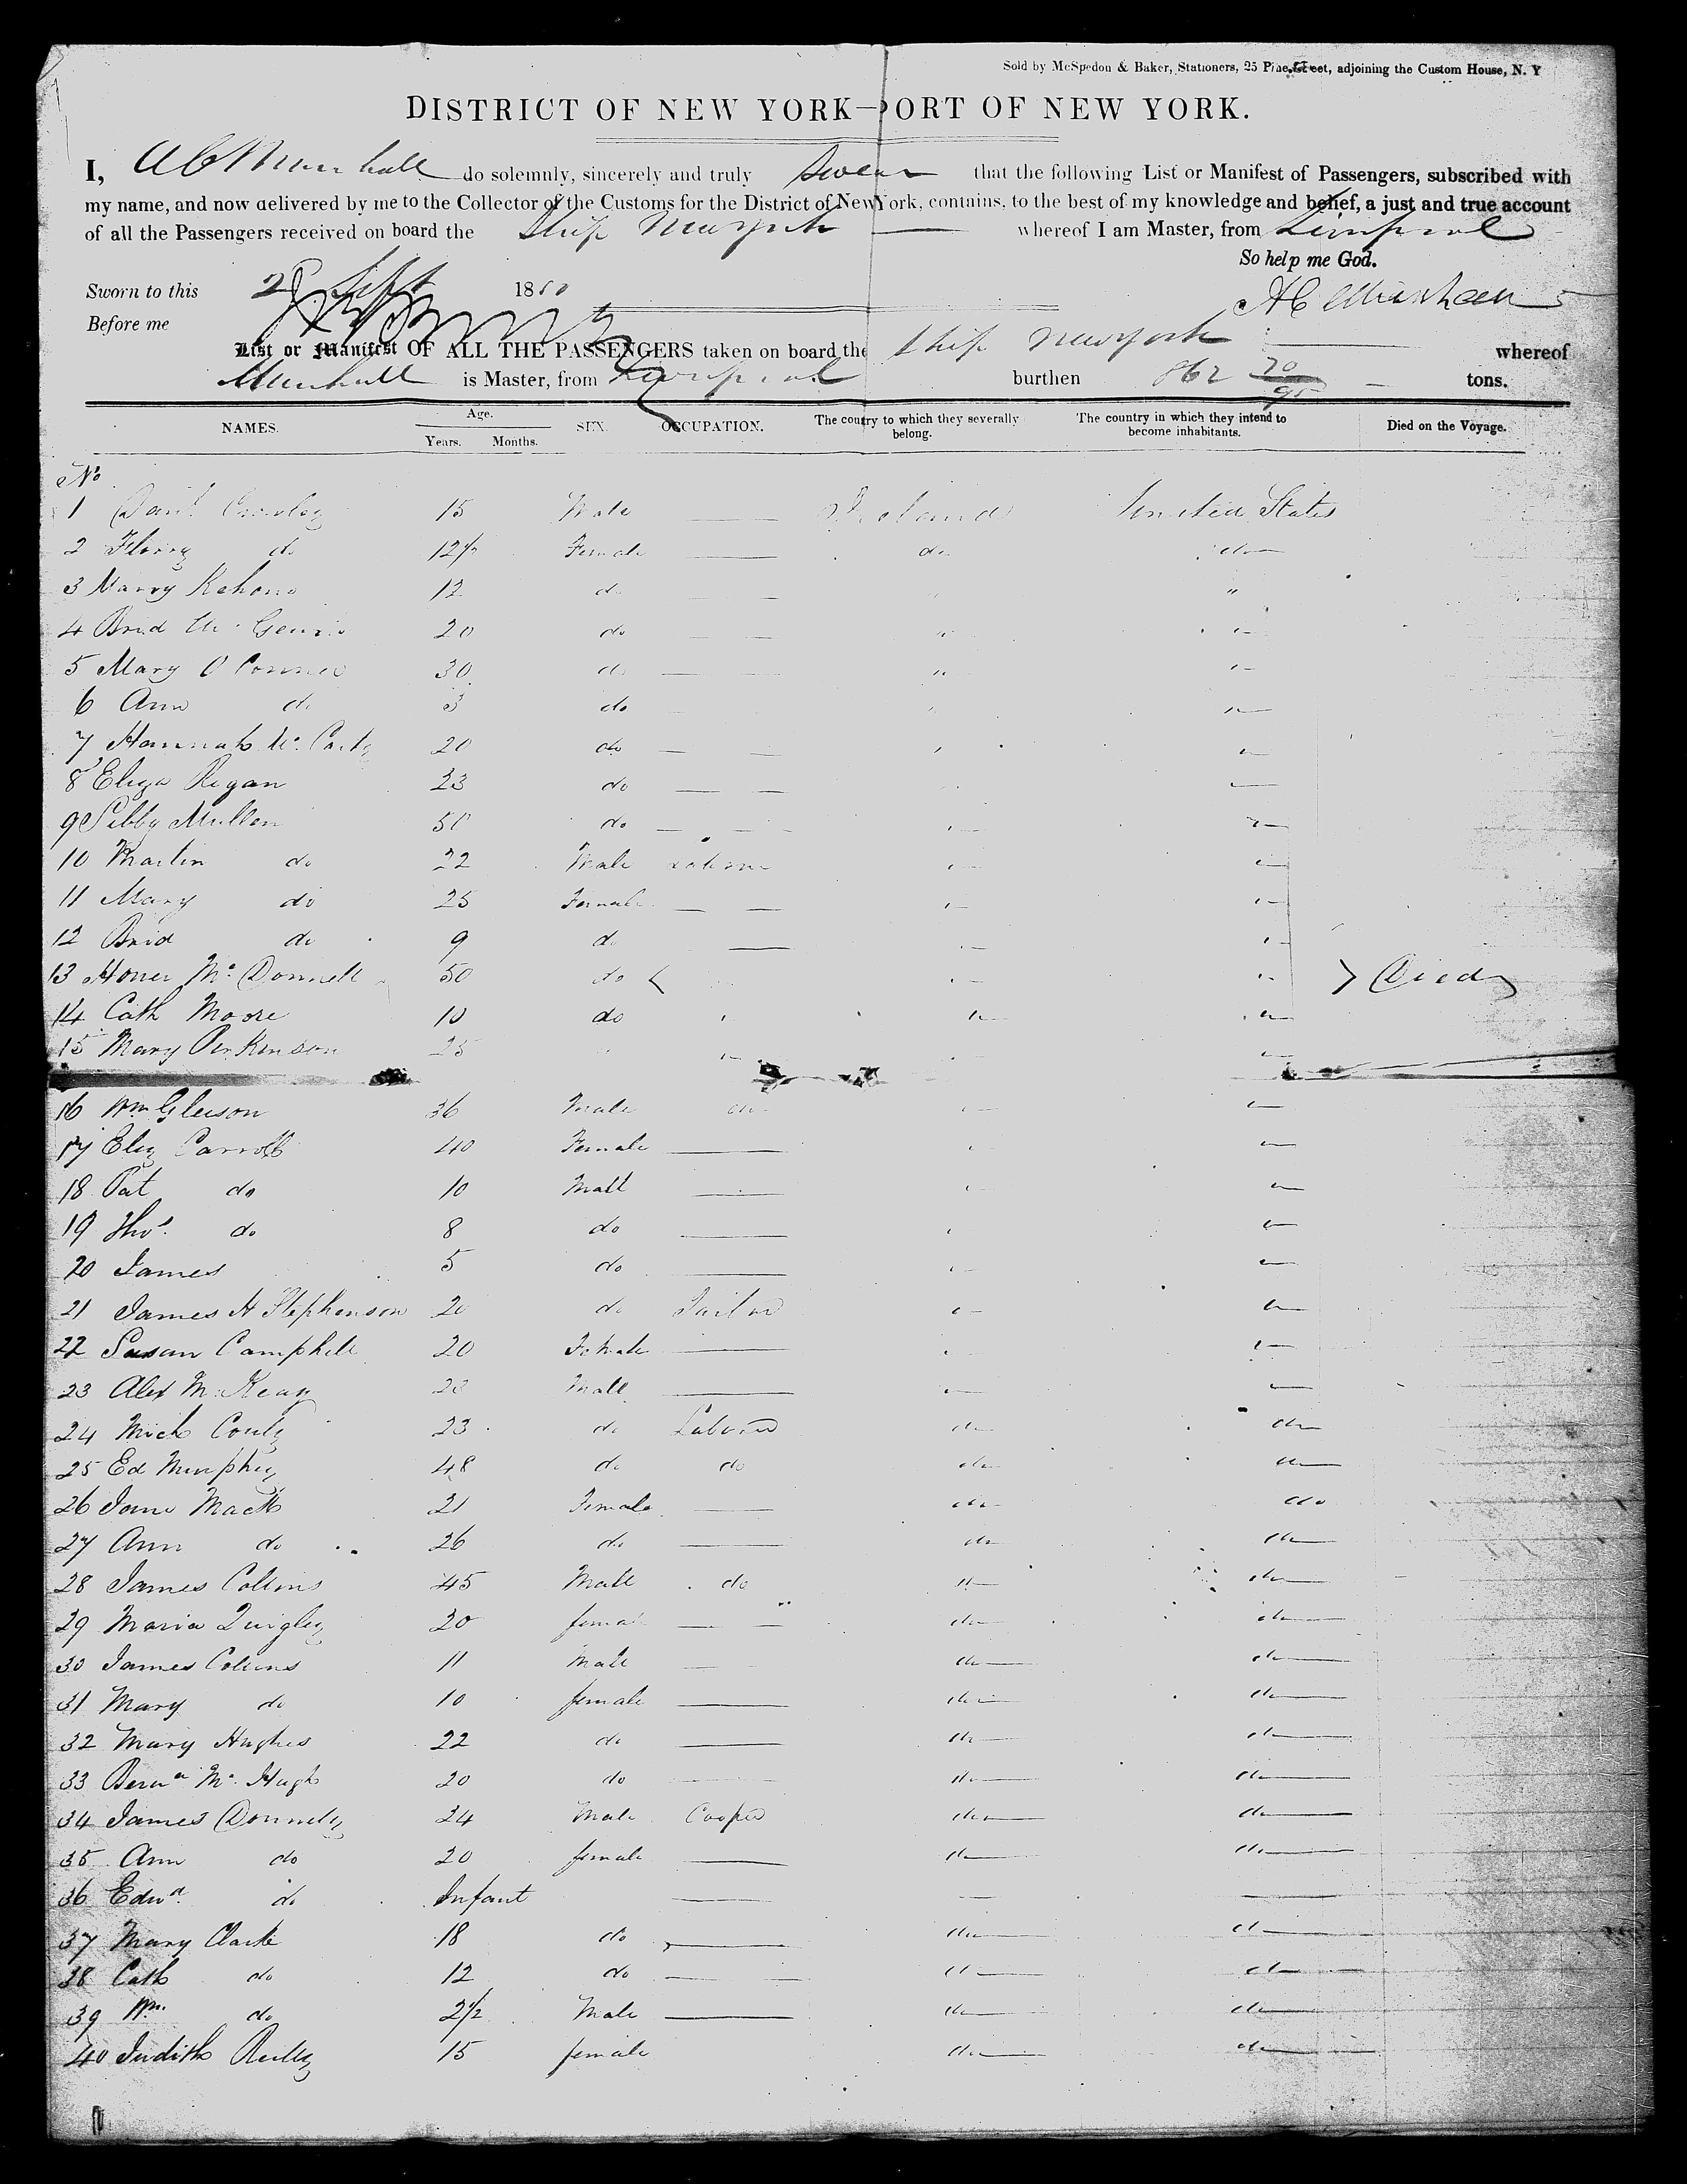 Sold by McSpedon & Baker, Stationers, 25 Pine Street, adjoining the Custom House, N. Y
DISTRICT OF NEW YORK—PORT OF NEW YORK.
I, do solemnly, sincerely and truly swear that the following List or Manifest of Passengers, subscribed with
my name, and now delivered by me to the Collector of the Customs for the District of New York, contains, to the best of my knowledge and belief, a just and true account
of all the Passengers received on board the Ship Newyork whereof I am Master, from Liverpool
So help me God.
Sworn to this Sept 1850
Before me
List or Manifest OF ALL THE PASSENGERS taken on board the Ship Newyork whereof
is Master, from Liverpool burthen 862 70/95 tons.
NAMES. Age. Years. Months. SEX. OCCUPATION. The country to which they severally belong. The country in which they intend to become inhabitants. Died on the Voyage.
No
1 Danl. Crowley 15 Male — Ireland United States
2 Florry do 12 1/2 Female — do do
3 Marry 12 do — " "
4 Brid 20 do — " "
5 Mary O Conner 30 do — " "
6 Ann do 3 do " "
7 Hannah Mc Carty 20 do — " "
8 Eliza Regan 23 do — "
9 Sibby Mullen 50 do — " "
10 Martin do 22 Male " "
11 Mary do 25 Female — " "
12 Brid do 9 do — " "
13 Honer Mc Donnell 50 do " " Died
14 Cath Moore 10 do " " "
15 Mary Perkinson 25 " " " "
16 Wm Gleeson 36 Male do " "
17 Eliz Carroll 40 Female — " "
18 Pat do 10 Male — " "
19 Thos. do 8 do — " "
20 James 5 do — " "
21 James H Stephenson 20 do Tailor " "
22 Susan Campbell 20 Female — " "
23 Alex Mc Keay Male — " "
24 Mich 23 do Laborer do do
25 Ed Murphey 48 do do do do
26 Jane Mack 21 Female — do do
27 Ann do 26 do — do do
28 James Collins 45 Male do do do
29 Maria Quigley 20 female — do do
30 James Collins 11 Male — do do
31 Mary do 10 female — do do
32 Mary Hughes 22 do — do do
33 Mc Hugh 20 do — do do
34 James Donnely 24 Male Cooper do do
35 Ann do 20 female — do do
36 Edwd. do Infant — — —
37 Mary Clarke 18 do — do do
38 Cath do 12 do — do do
39 Wm. do 2 1/2 Male — do do
40 Judith Reilly 15 female do do